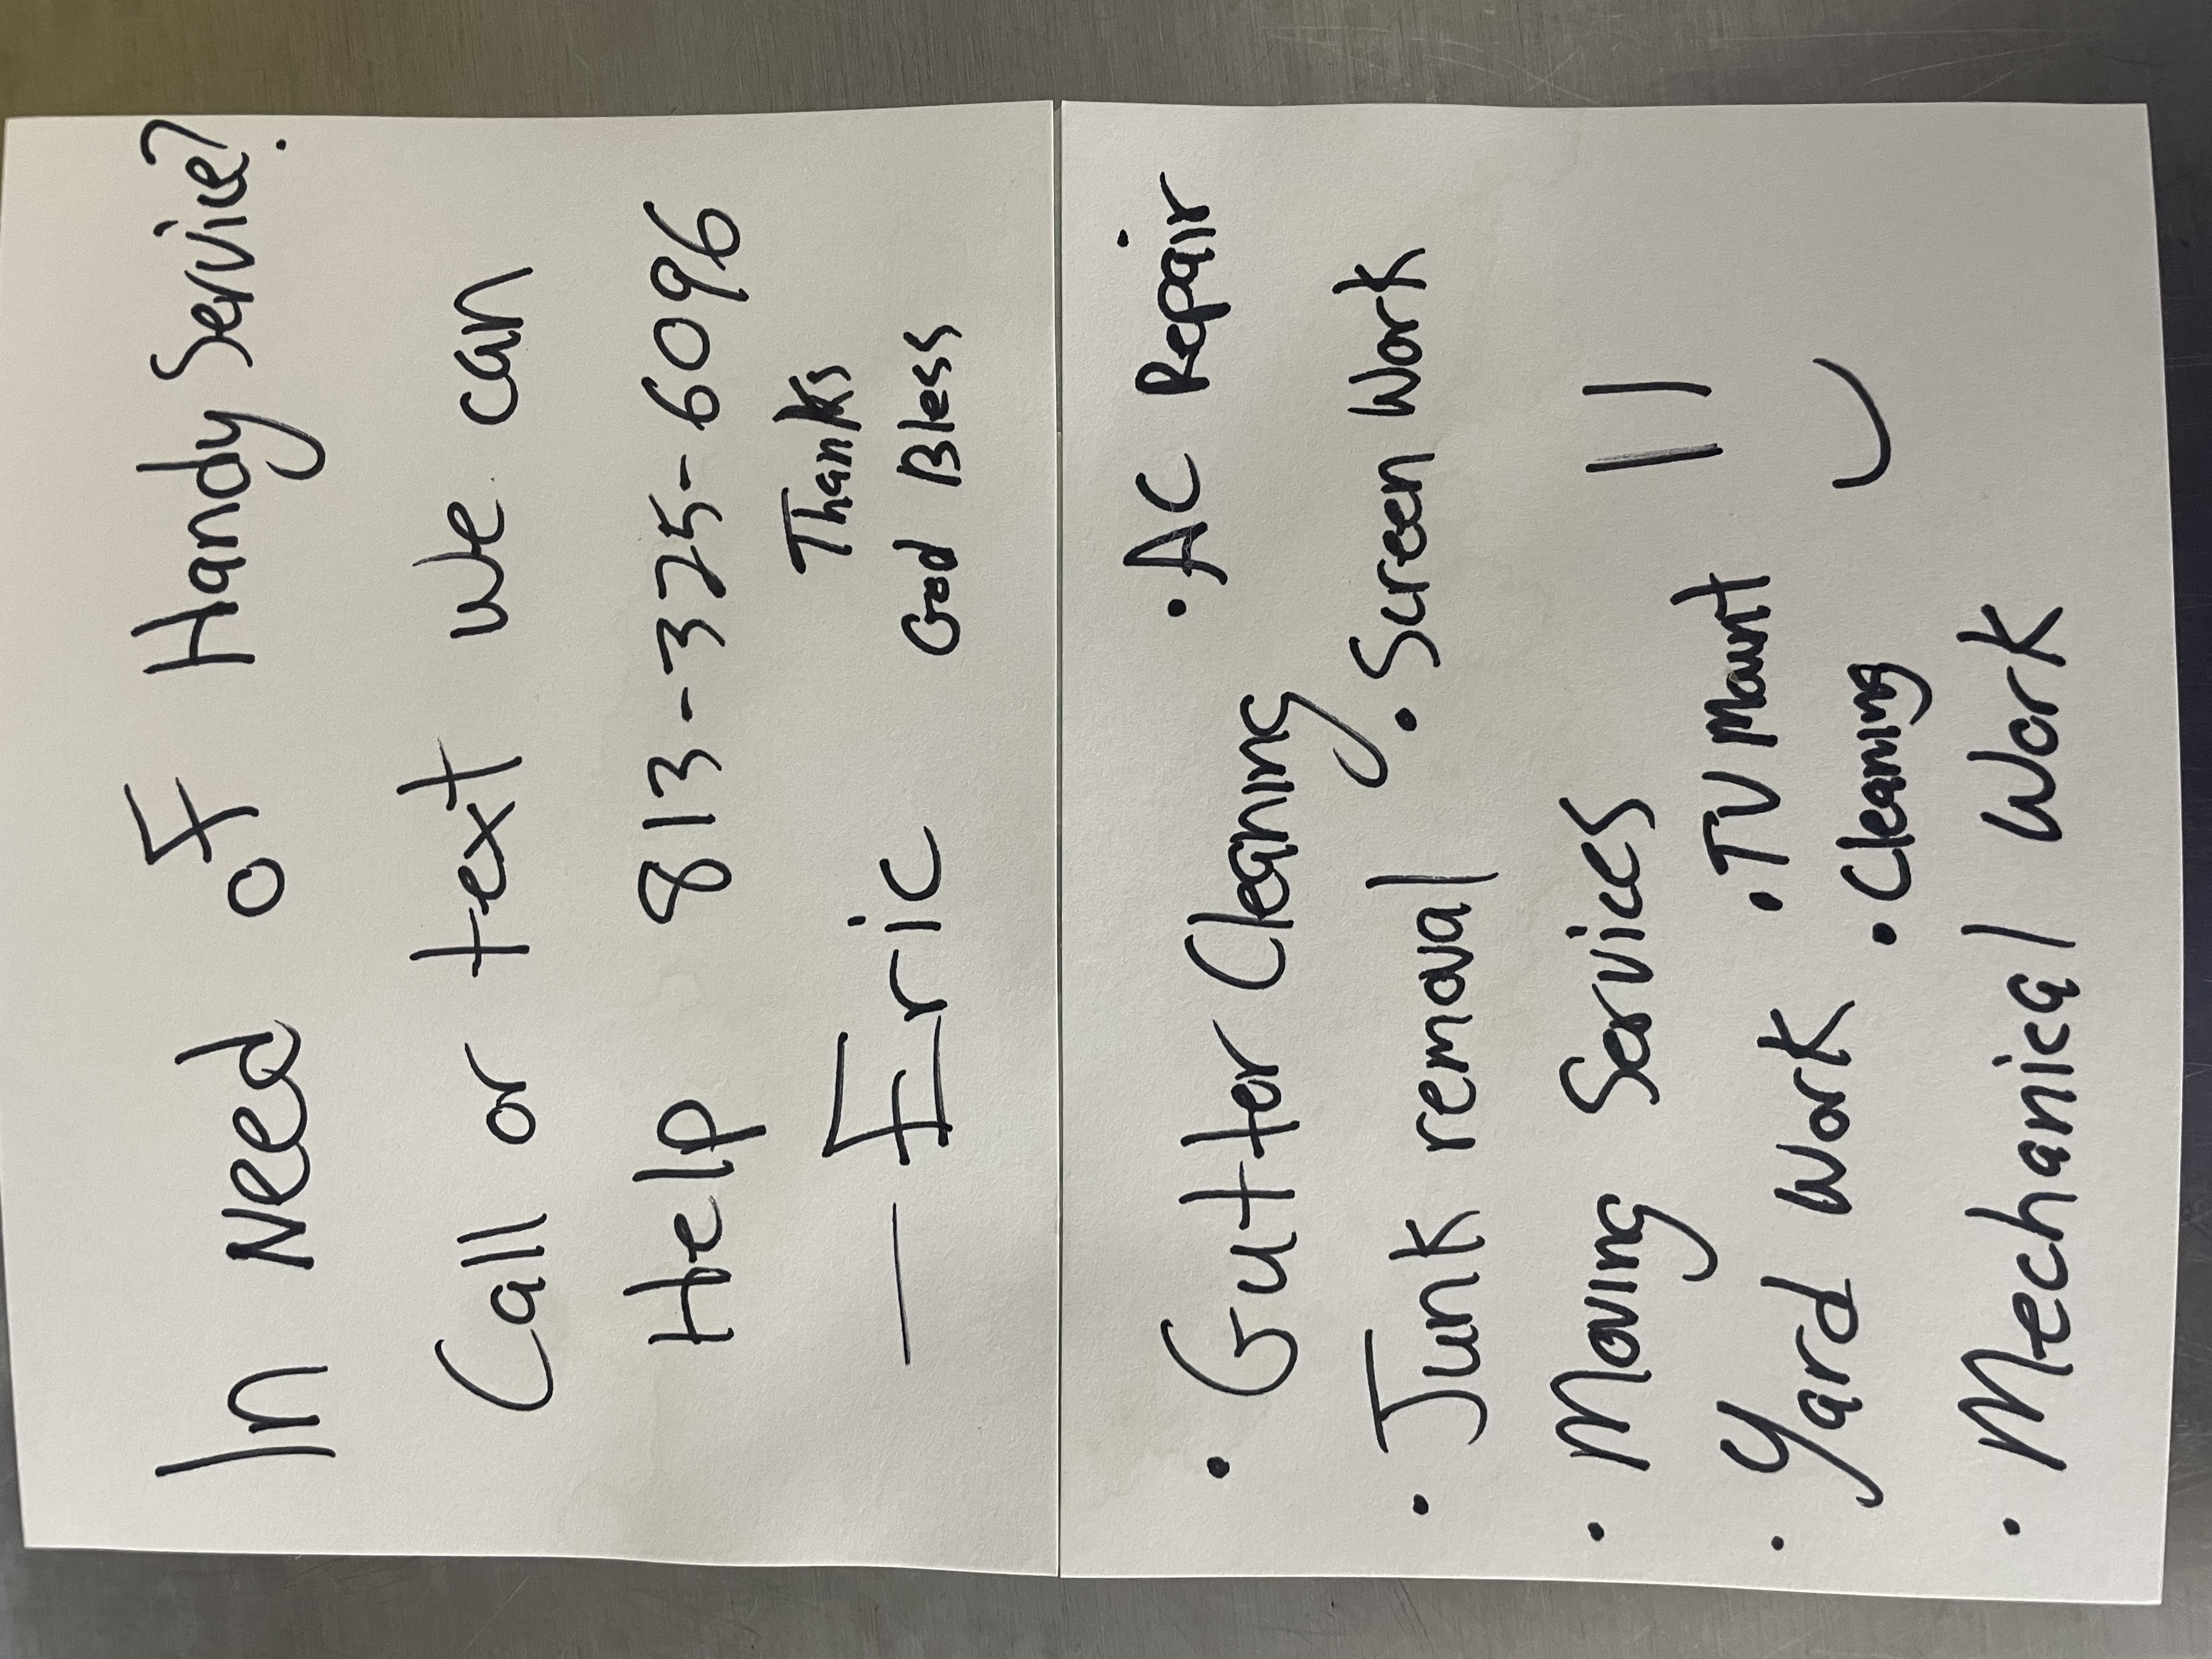 In Need of Handy Service?
Call or text we can
Help 813-325-6096
Thanks
— Eric God Bless
• AC Repair
• Gutter Cleaning
• Screen Work
• Junk removal
• Moving Services
• TV Mount
• Yard Work
• Cleaning
• Mechanical Work